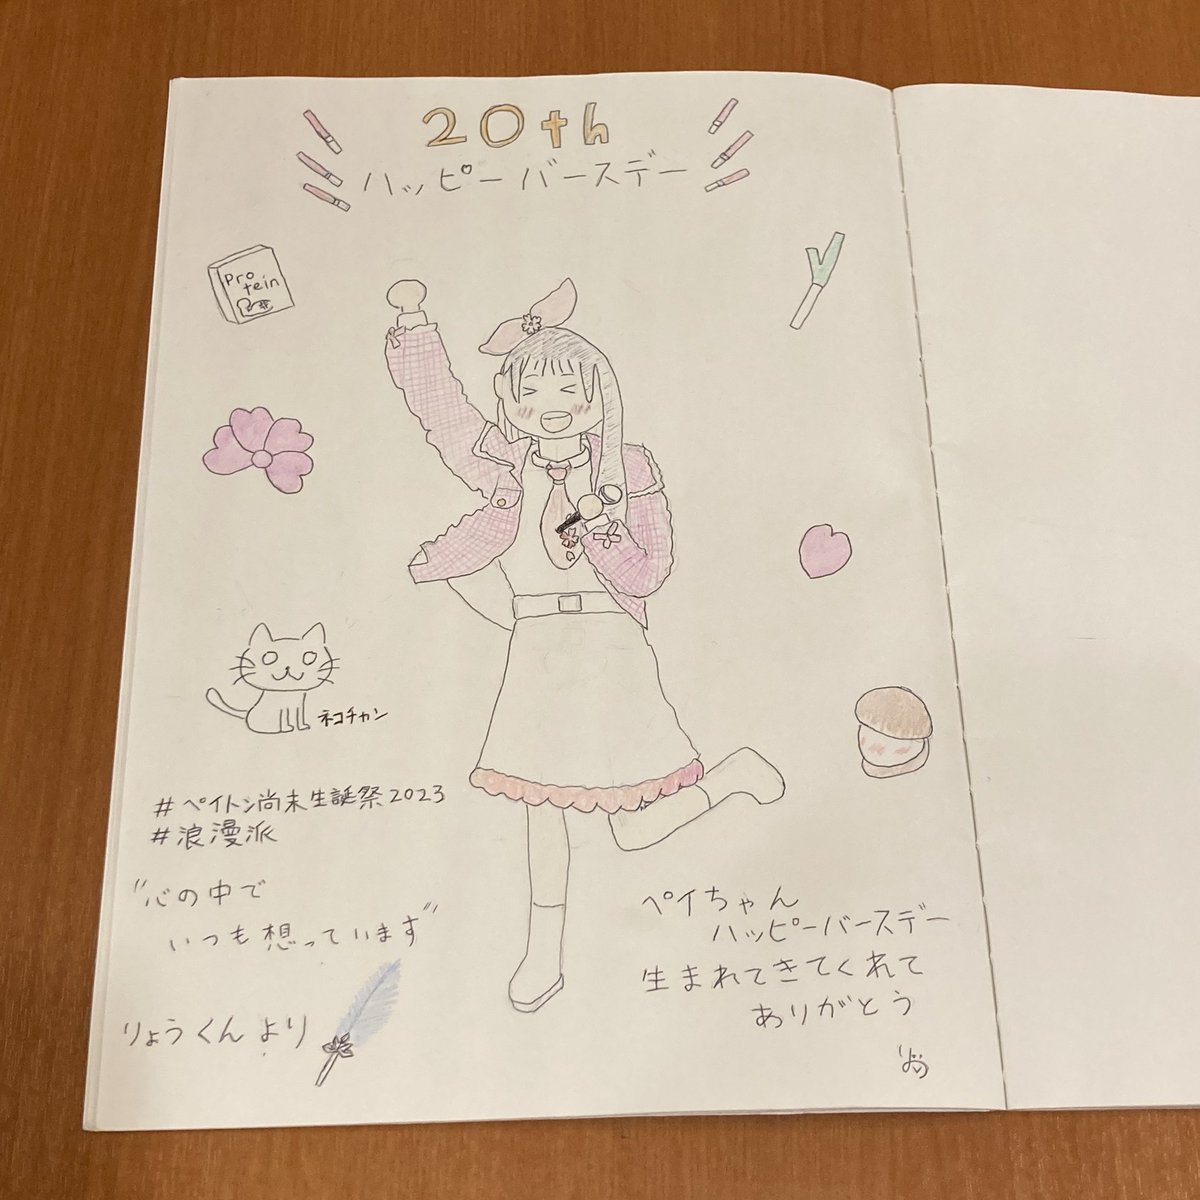 20th
ハッピーバースデー
Pro
tein
ネコチャン
#ペイトン尚未生誕祭2023
#浪漫派
"心の中で
いつも想っています"
りょうくんより
ペイちゃん
ハッピーバースデー
生まれてきてくれて
ありがとう